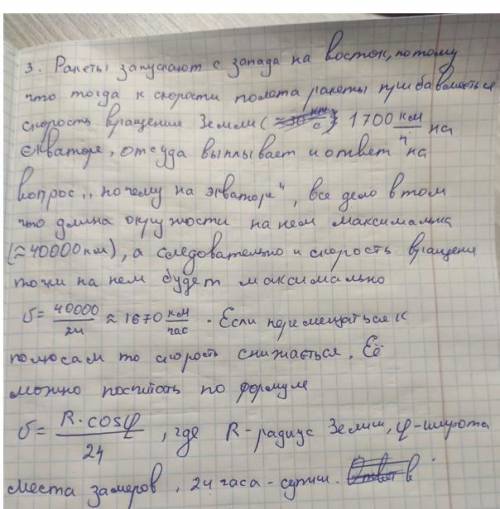 3. Ракеты запускают с запада на восток, потому
что тогда к скорости полота ракеты прибавляеться
скорость вращения Земли (≈ 1700 км/ч на
екваторе, отсуда выплывает и ответ на
вопрос „почему на экваторе", все дело в том
что длина окружости на нем максимальна
(≈40000 км), а следовательно и скорость вращени
точки на нем будет максимально
v = 40000/24 ≈ 1670 км/час. Если перемещаться к
полюсам то скорость снижається. Её
можно посчитать по формуле
v = R·cosφ/24, где R - радиус Земли, φ - широта
места замеров, 24 часа - сутки.